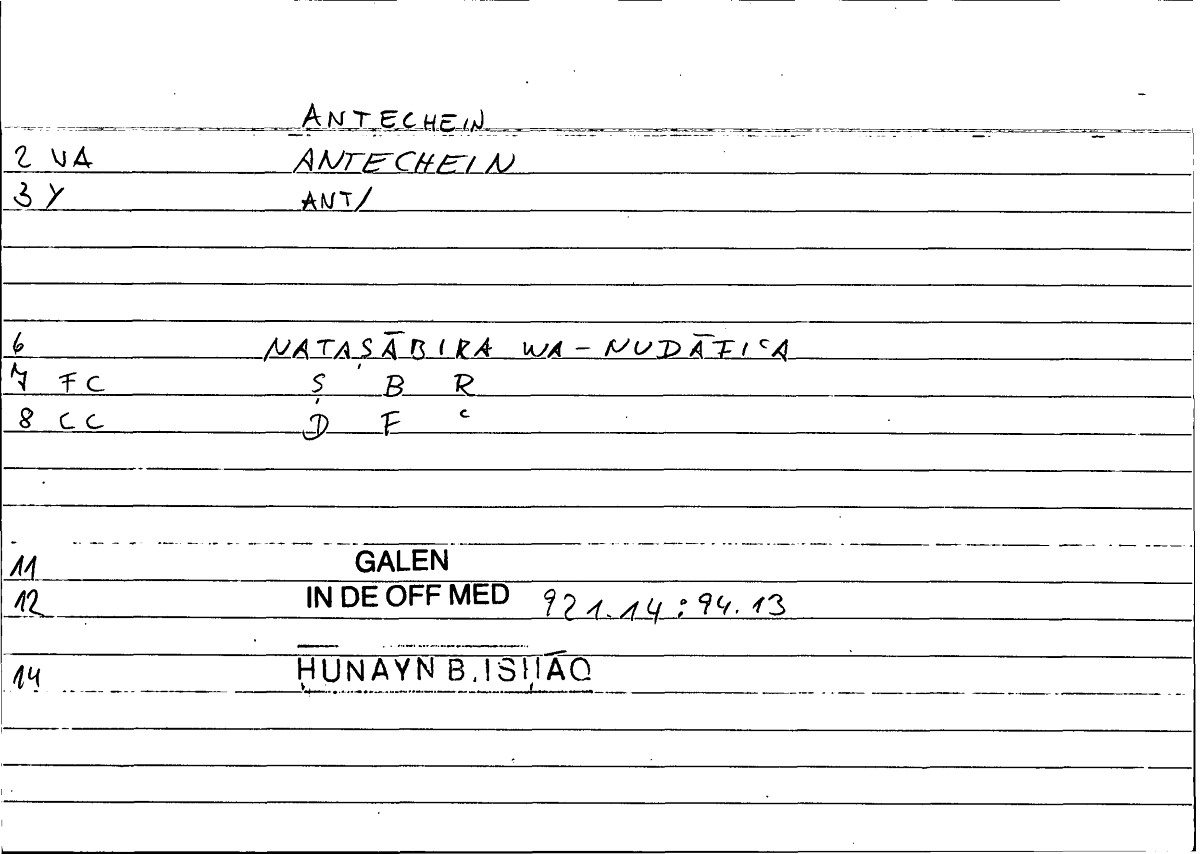 ANTECHEIN
2 VA ANTECHEIN
3 Y ANT/
6 NATAṢĀBIRA WA-NUDĀFIʿA
7 FC Ṣ B R
8 CC D F ʿ
11 GALEN
12 IN DE OFF MED 921.14:94.13
14 ḤUNAYN B. ISḤĀQ